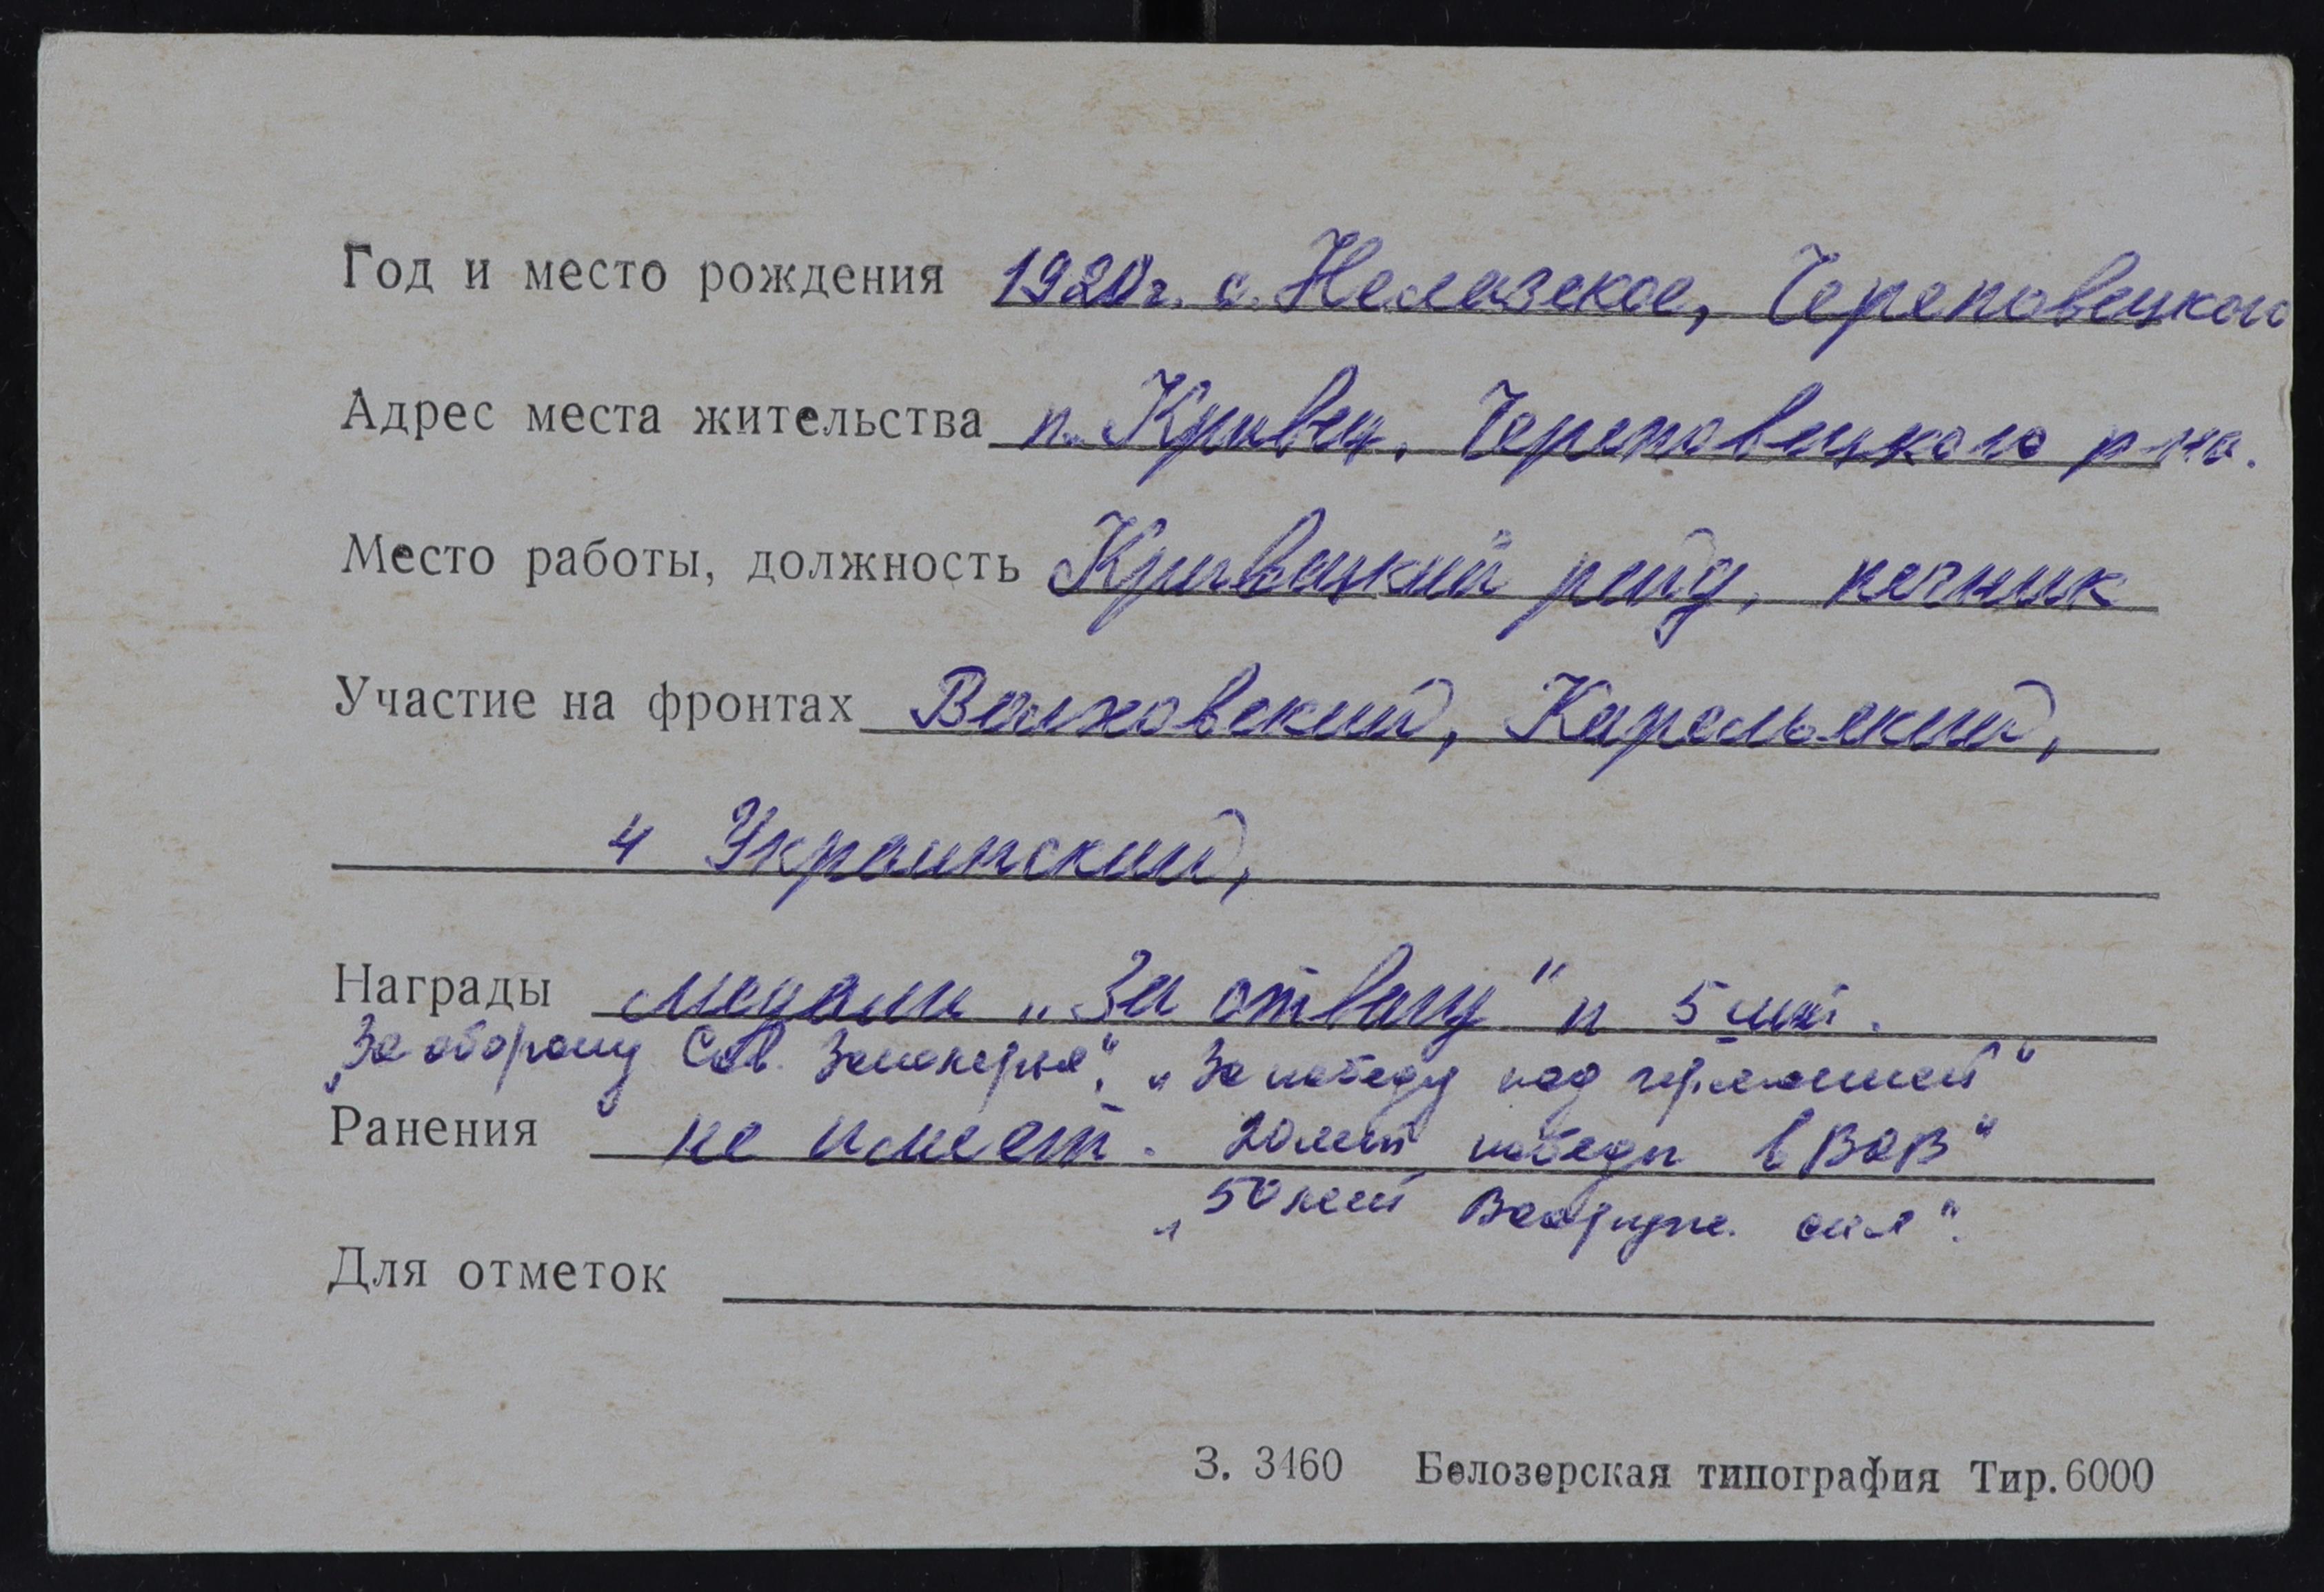 Год и место рождения 1920г. с. Нелазское, Череповецкого
Адрес места жительства п. Кривец, Череповецкого р-на.
Место работы, должность Кривецкий рейд, печник
Участие на фронтах Волховский, Карельский,
4 Украинский,
Награды медали „За отвагу" и 5 шт.
„За оборону Сов. Заполярья", „За победу над германией"
Ранения не имеет. 20 лет победы в ВОВ"
„50 лет Вооруже. сил".
Для отметок
З. 3460 Белозерская типография Тир. 6000